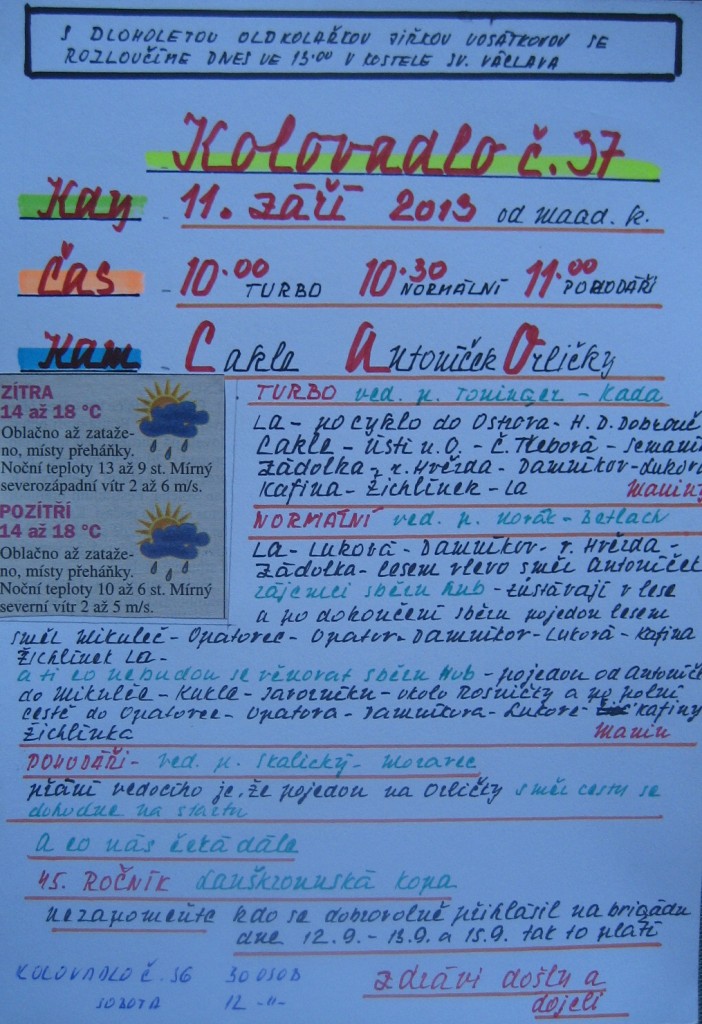 S DLOHOLETOU OLDKOLAŘKOU JIŘKOU VOSÁTKOVOU SE
ROZLOUČÍME DNES VE 13.00 V KOSTELE SV. VÁCLAVA
Kolovadlo č. 37
Kdy - 11. září 2013 od maad. k.
Čas - 10.00 TURBO 10.30 NORMÁLNÍ 11.00 POHODÁŘI
Kam - Cakle Antoníček Orličky
ZÍTRA
14 až 18 °C
Oblačno až zataže-
no, místy přeháňky.
Noční teploty 13 až 9 st. Mírný
severozápadní vítr 2 až 6 m/s.
POZÍTŘÍ
14 až 18 °C
Oblačno až zataže-
no, místy přeháňky.
Noční teploty 10 až 6 st. Mírný
severní vítr 2 až 5 m/s.
TURBO ved. p. Toninger - Kada
LA - po cyklo do Ostrova - H. D. Dobrouč
Cakle - Ústí n. O. - Č. Třebová - Semanín
Zádolka - r. Hvězda - Damníkov - Luková
Kafina - Žichlínek - LA Maniny
NORMÁLNÍ ved. p. Horák - Betlach
LA - Luková - Damníkov - r. Hvězda -
Zádolka - lesem vlevo směr Antoníček
zájemci sběru hub - zůstávají v lese
a po dokončení sběru pojedou lesem
směr Mikuleč - Opatovec - Opatov - Damníkov - Luková - Kafina
Žichlínek LA -
a ti co nebudou se věnovat sběru hub - pojedou od Antoníčk
do Mikulče - Kukle - Javorníku - okolo Rosničky a po polní
cestě do Opatovec - Opatova - Damníkova - Lukové - Kafiny
Žichlínka Manin
POHODÁŘI - ved. p. Skalický - Moravec
přání vedocího je, že pojedou na Orličky směr cesty se
dohodne na startu
A co nás čeká dále
45. ROČNÍK Lanškrounská kopa
nezapomeňte kdo se dobrovolně přihlásil na brigádu
dne 12.9. - 13.9. a 15.9. tak to platí
KOLOVADLO Č. 36 30 OSOB
SOBOTA 12 -"-
Zdrávi došli a
dojeli